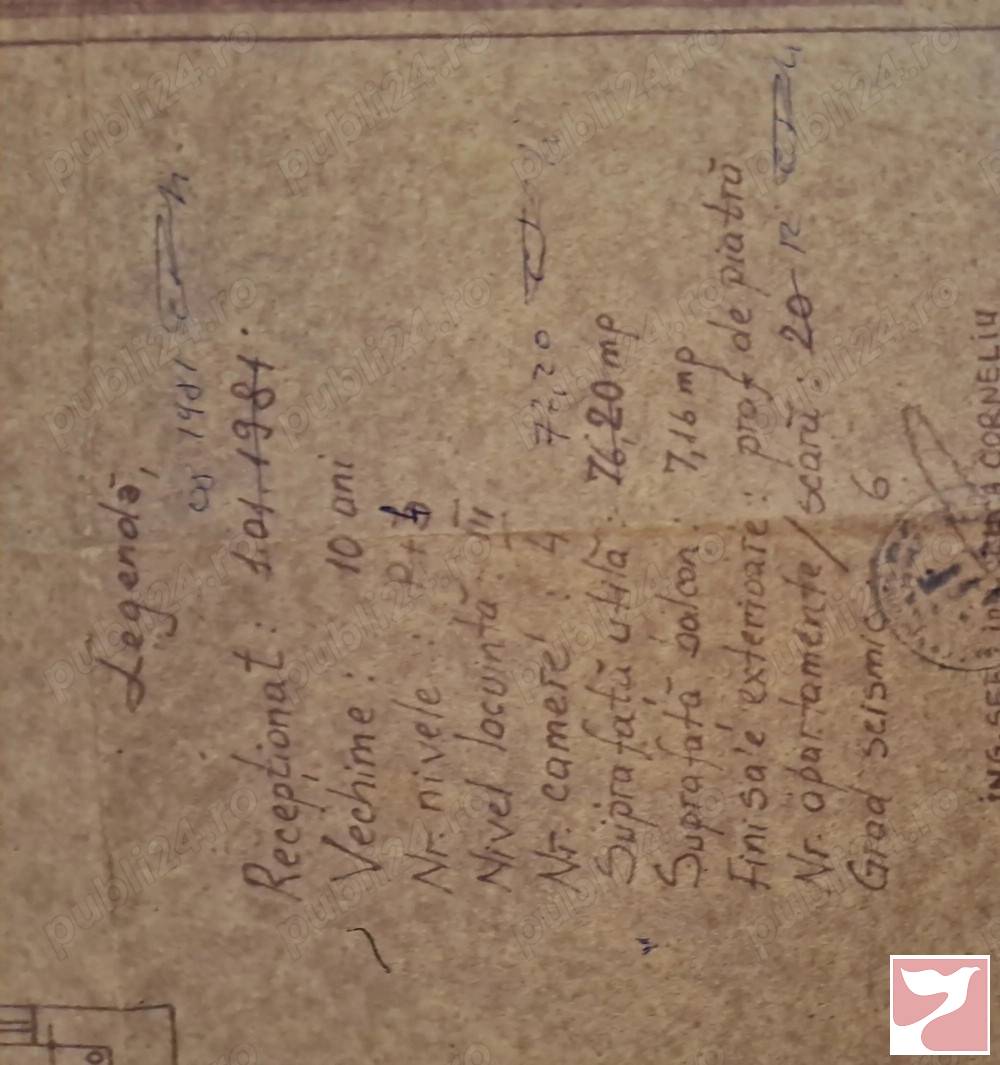 Legendă,
1981
Recepționat : 1.01.1981.
Vechime : 10 ani
Nr. nivele : P+4
Nivel locuință : III
Nr. camere : 4
Suprafată utilă : 76,20 mp
Suprafată balcon : 7,16 mp
Finisaie exterioare : praf de piatră
Nr. apartamente/scară : 20 12
Grad seismic 6
CORNELIU
publi24.ro